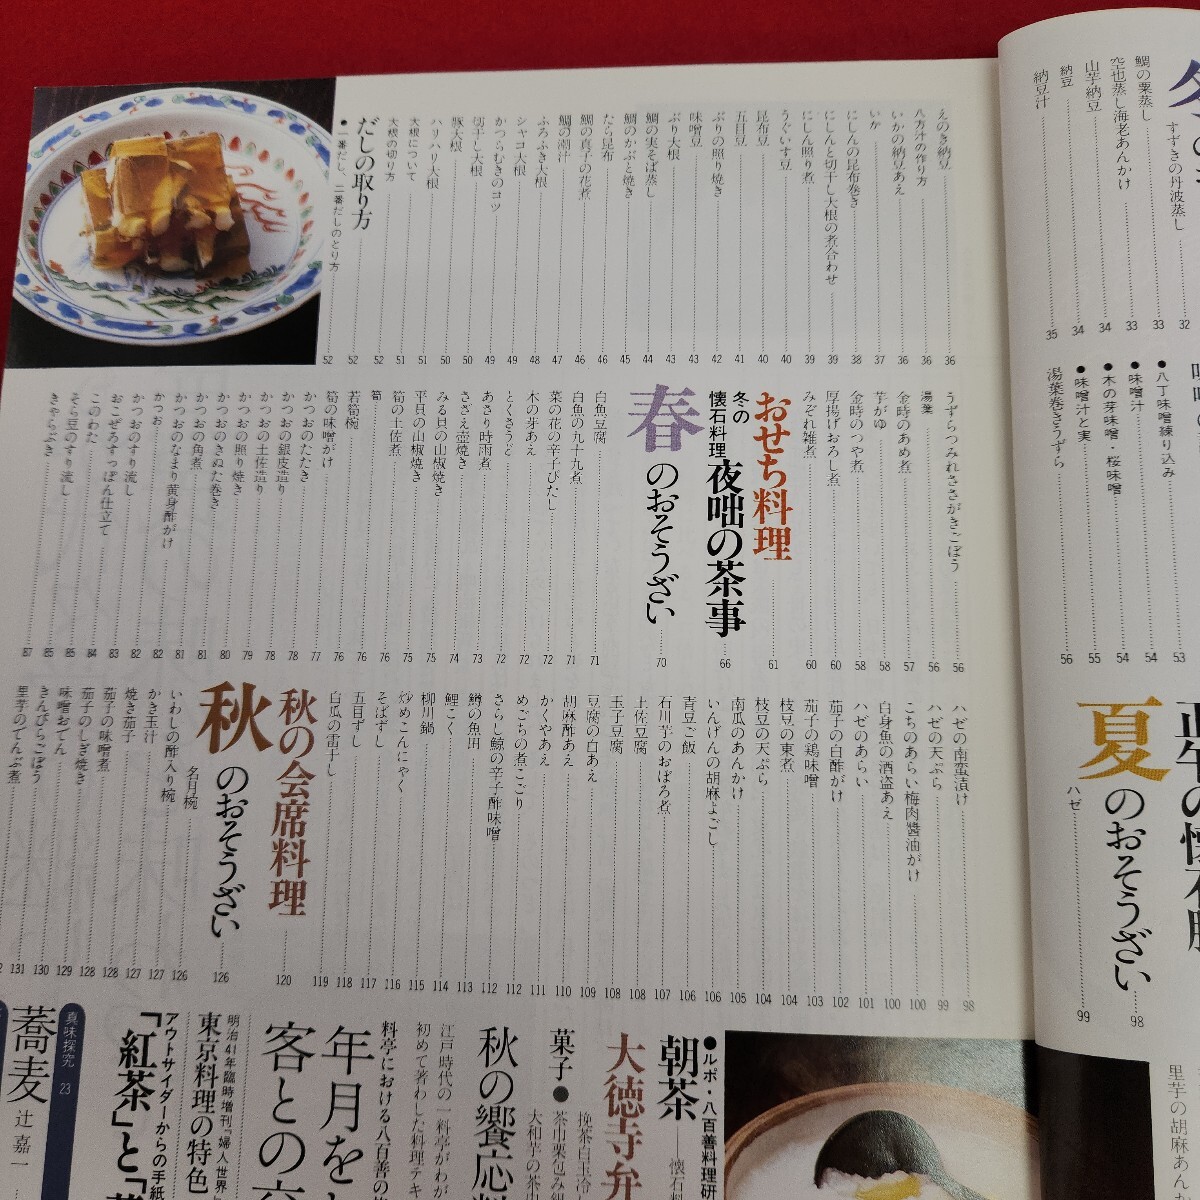 鯛の粟蒸し 32
すずきの丹波蒸し
空也蒸し海老あんかけ 33
山芋納豆 34
納豆 34
納豆汁 35
えのき納豆 36
八方汁の作り方 36
いかの納豆あえ 36
いか 37
にしんの昆布巻き 38
にしんと切干し大根の煮合わせ 39
にしん照り煮 39
うぐいす豆 40
昆布豆 40
五目豆 41
ぶりの照り焼き 42
味噌豆 43
ぶり大根 43
鯛の実そば蒸し 44
鯛のかぶと焼き 45
たら昆布 46
鯛の真子の花煮 46
鯛の潮汁 47
ふろふき大根 48
シャコ大根 49
かつらむきのコツ 49
切干し大根 50
豚大根 50
ハリハリ大根 51
大根について 51
大根の切り方 52
だしの取り方 52
●一番だし、二番だしのとり方 52
●八丁味噌練り込み 53
●味噌汁 54
●木の芽味噌 桜味噌 54
●味噌汁と実 55
湯葉巻きうずら 56
うずらつみれささがきごぼう 56
湯葉 56
金時のあめ煮 57
芋がゆ 58
金時のつや煮 58
厚揚げおろし煮 60
みぞれ雑煮 60
おせち料理 61
冬の
懐石料理
夜咄の茶事 66
春のおそうざい 70
白魚豆腐 71
白魚の九十九煮 71
菜の花の辛子びたし 72
木の芽あえ 72
とくさうど 72
あさり時雨煮 73
さざえ壺焼き 74
みる貝の山椒焼き 74
平貝の山椒焼き 75
筍の土佐煮 75
筍 76
若筍椀 76
筍の味噌がけ 76
かつおのたたき 77
かつおの銀皮造り 78
かつおの土佐造り 78
かつおの照り焼き 79
かつおのきぬた巻き 80
かつおの角煮 81
かつおのなまり黄身酢がけ 81
かつお 82
かつおのすり流し 82
おこぜろすっぽん仕立て 83
このわた 84
そら豆のすり流し 85
きゃらぶき 85
87
夏のおそうざい 98
ハゼ 99
ハゼの南蛮漬け 98
ハゼの天ぷら 99
こちのあらい梅肉醤油がけ 100
白身魚の酒盗あえ 100
ハゼのあらい 101
茄子の白酢がけ 102
茄子の鶏味噌 103
枝豆の東煮 104
枝豆の天ぷら 104
南瓜のあんかけ 105
いんげんの胡麻よごし 106
青豆ご飯 106
石川芋のおぼろ煮 107
土佐豆腐 108
玉子豆腐 108
豆腐の白あえ 109
胡麻酢あえ 110
かくやあえ 111
めごちの煮こごり 112
さらし鯨の辛子酢味噌 112
鱒の魚田 113
鯉こく 114
柳川鍋 115
炒めこんにゃく 116
そばずし 117
五目ずし 118
白瓜の雷干し 118
119
秋の会席料理 120
秋のおそうざい 126
名月椀
いわしの酢入り椀 126
かき玉汁 127
焼き茄子 127
茄子の味噌煮 128
茄子のしぎ焼き 128
味噌おでん 129
きんぴらごぼう 130
里芋のでんぶ煮 131
●ルポ・八百善料理研
朝茶──懐石料
大徳寺弁
菓子●
挽茶白玉冷
茶巾栗包み
大和芋の茶巾
秋の饗応料
江戸時代の一料亭がわが
初めて著わした料理テキ
料亭における八百善の
年月を
客との
明治41年臨時増刊「婦人世界
東京料理の特色
アウトサイダーからの手紙
「紅茶」と「
真味探究 23
蕎麦 辻 嘉一
里芋の胡麻あん